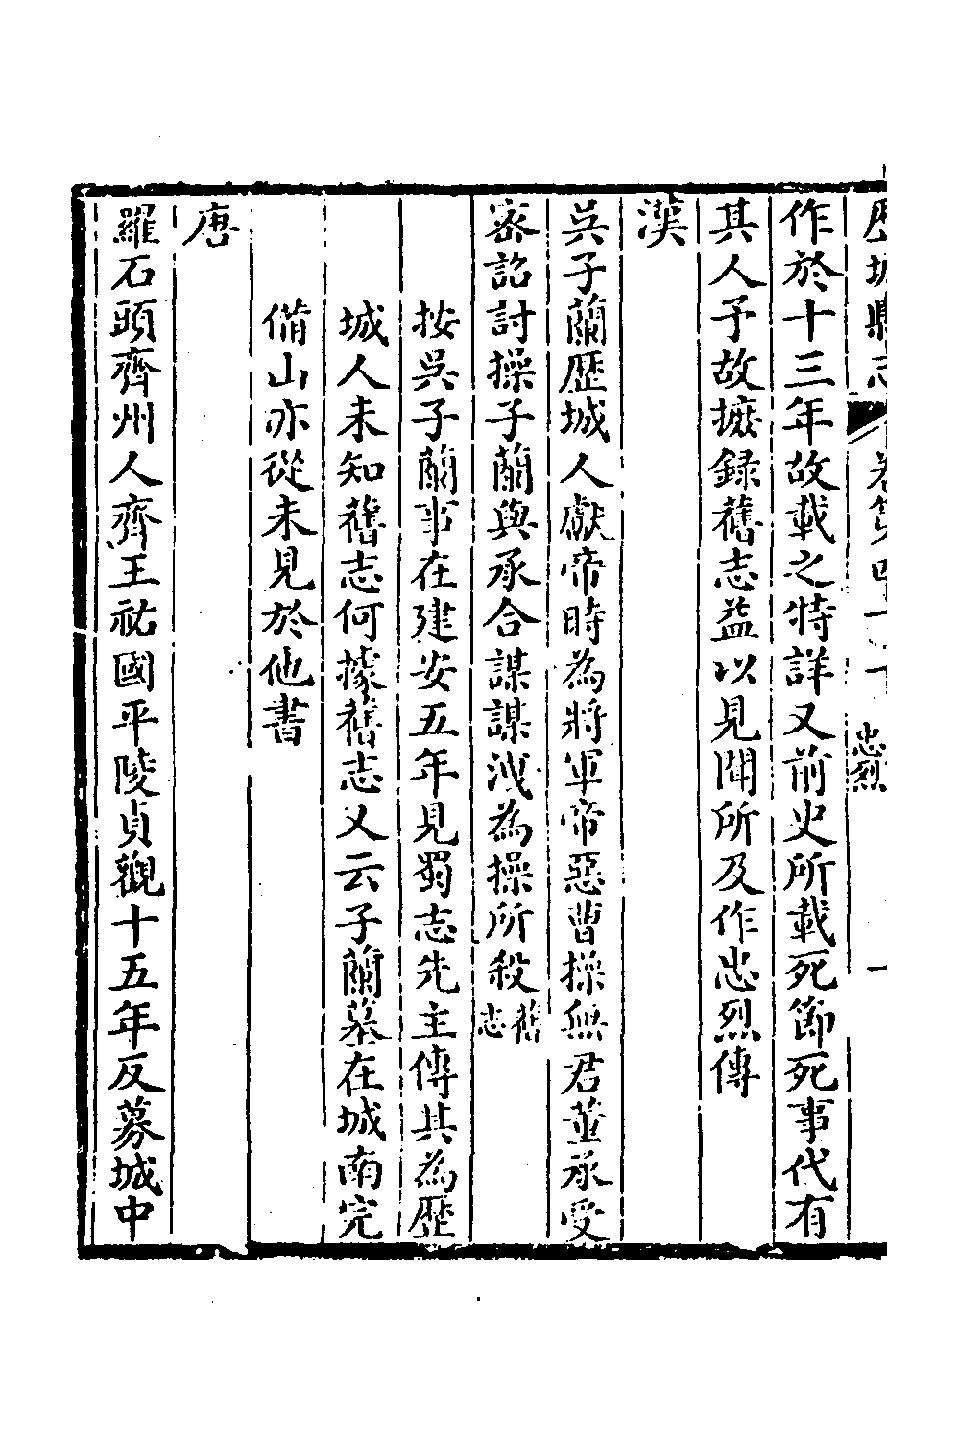 作於十三年故載之特詳又前史所載死節死事代有
其人予故摭録舊志益以見聞所及作忠烈傳
漢
吳子蘭歷城人獻帝時為將軍帝惡曹操無君董承受
密詔討操子蘭與承合謀謀洩為操所殺舊志
按吳子蘭事在建安五年見蜀志先主傳其為歷
城人未知舊志何據舊志又云子蘭墓在城南完
備山亦從未見於他書
唐
羅石頭齊州人齊王祐國平陵貞觀十五年反募城中